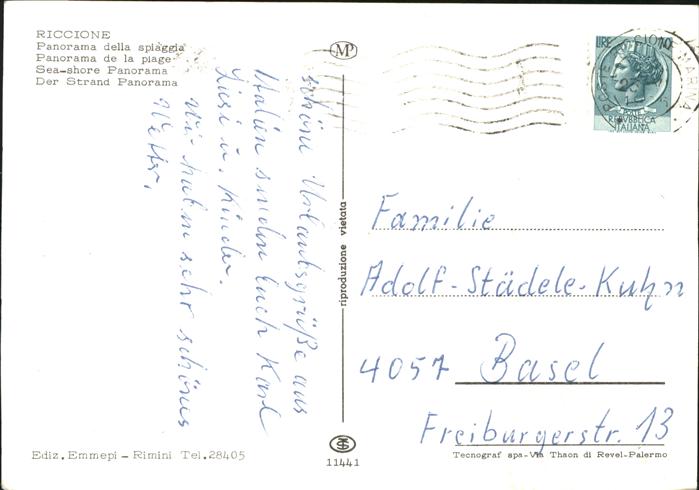 RICCIONE
Panorama della spiaggia
Panorama de la piage
Sea-shore Panorama
Der Strand Panorama
MP
LIRE 10
REPVBBLICA
ITALIANA
schöne Urlaubsgrüße aus
Italien senden Euch Karl
Liesi u. Kinder.
Wir haben sehr schönes
Wetter.
riproduzione vietata
Familie
Adolf-Städele-Kuhn
4057 Basel
Freiburgerstr. 13
Ediz. Emmepi - Rimini Tel. 28405
11441
Tecnograf spa-Via Thaon di Revel-Palermo